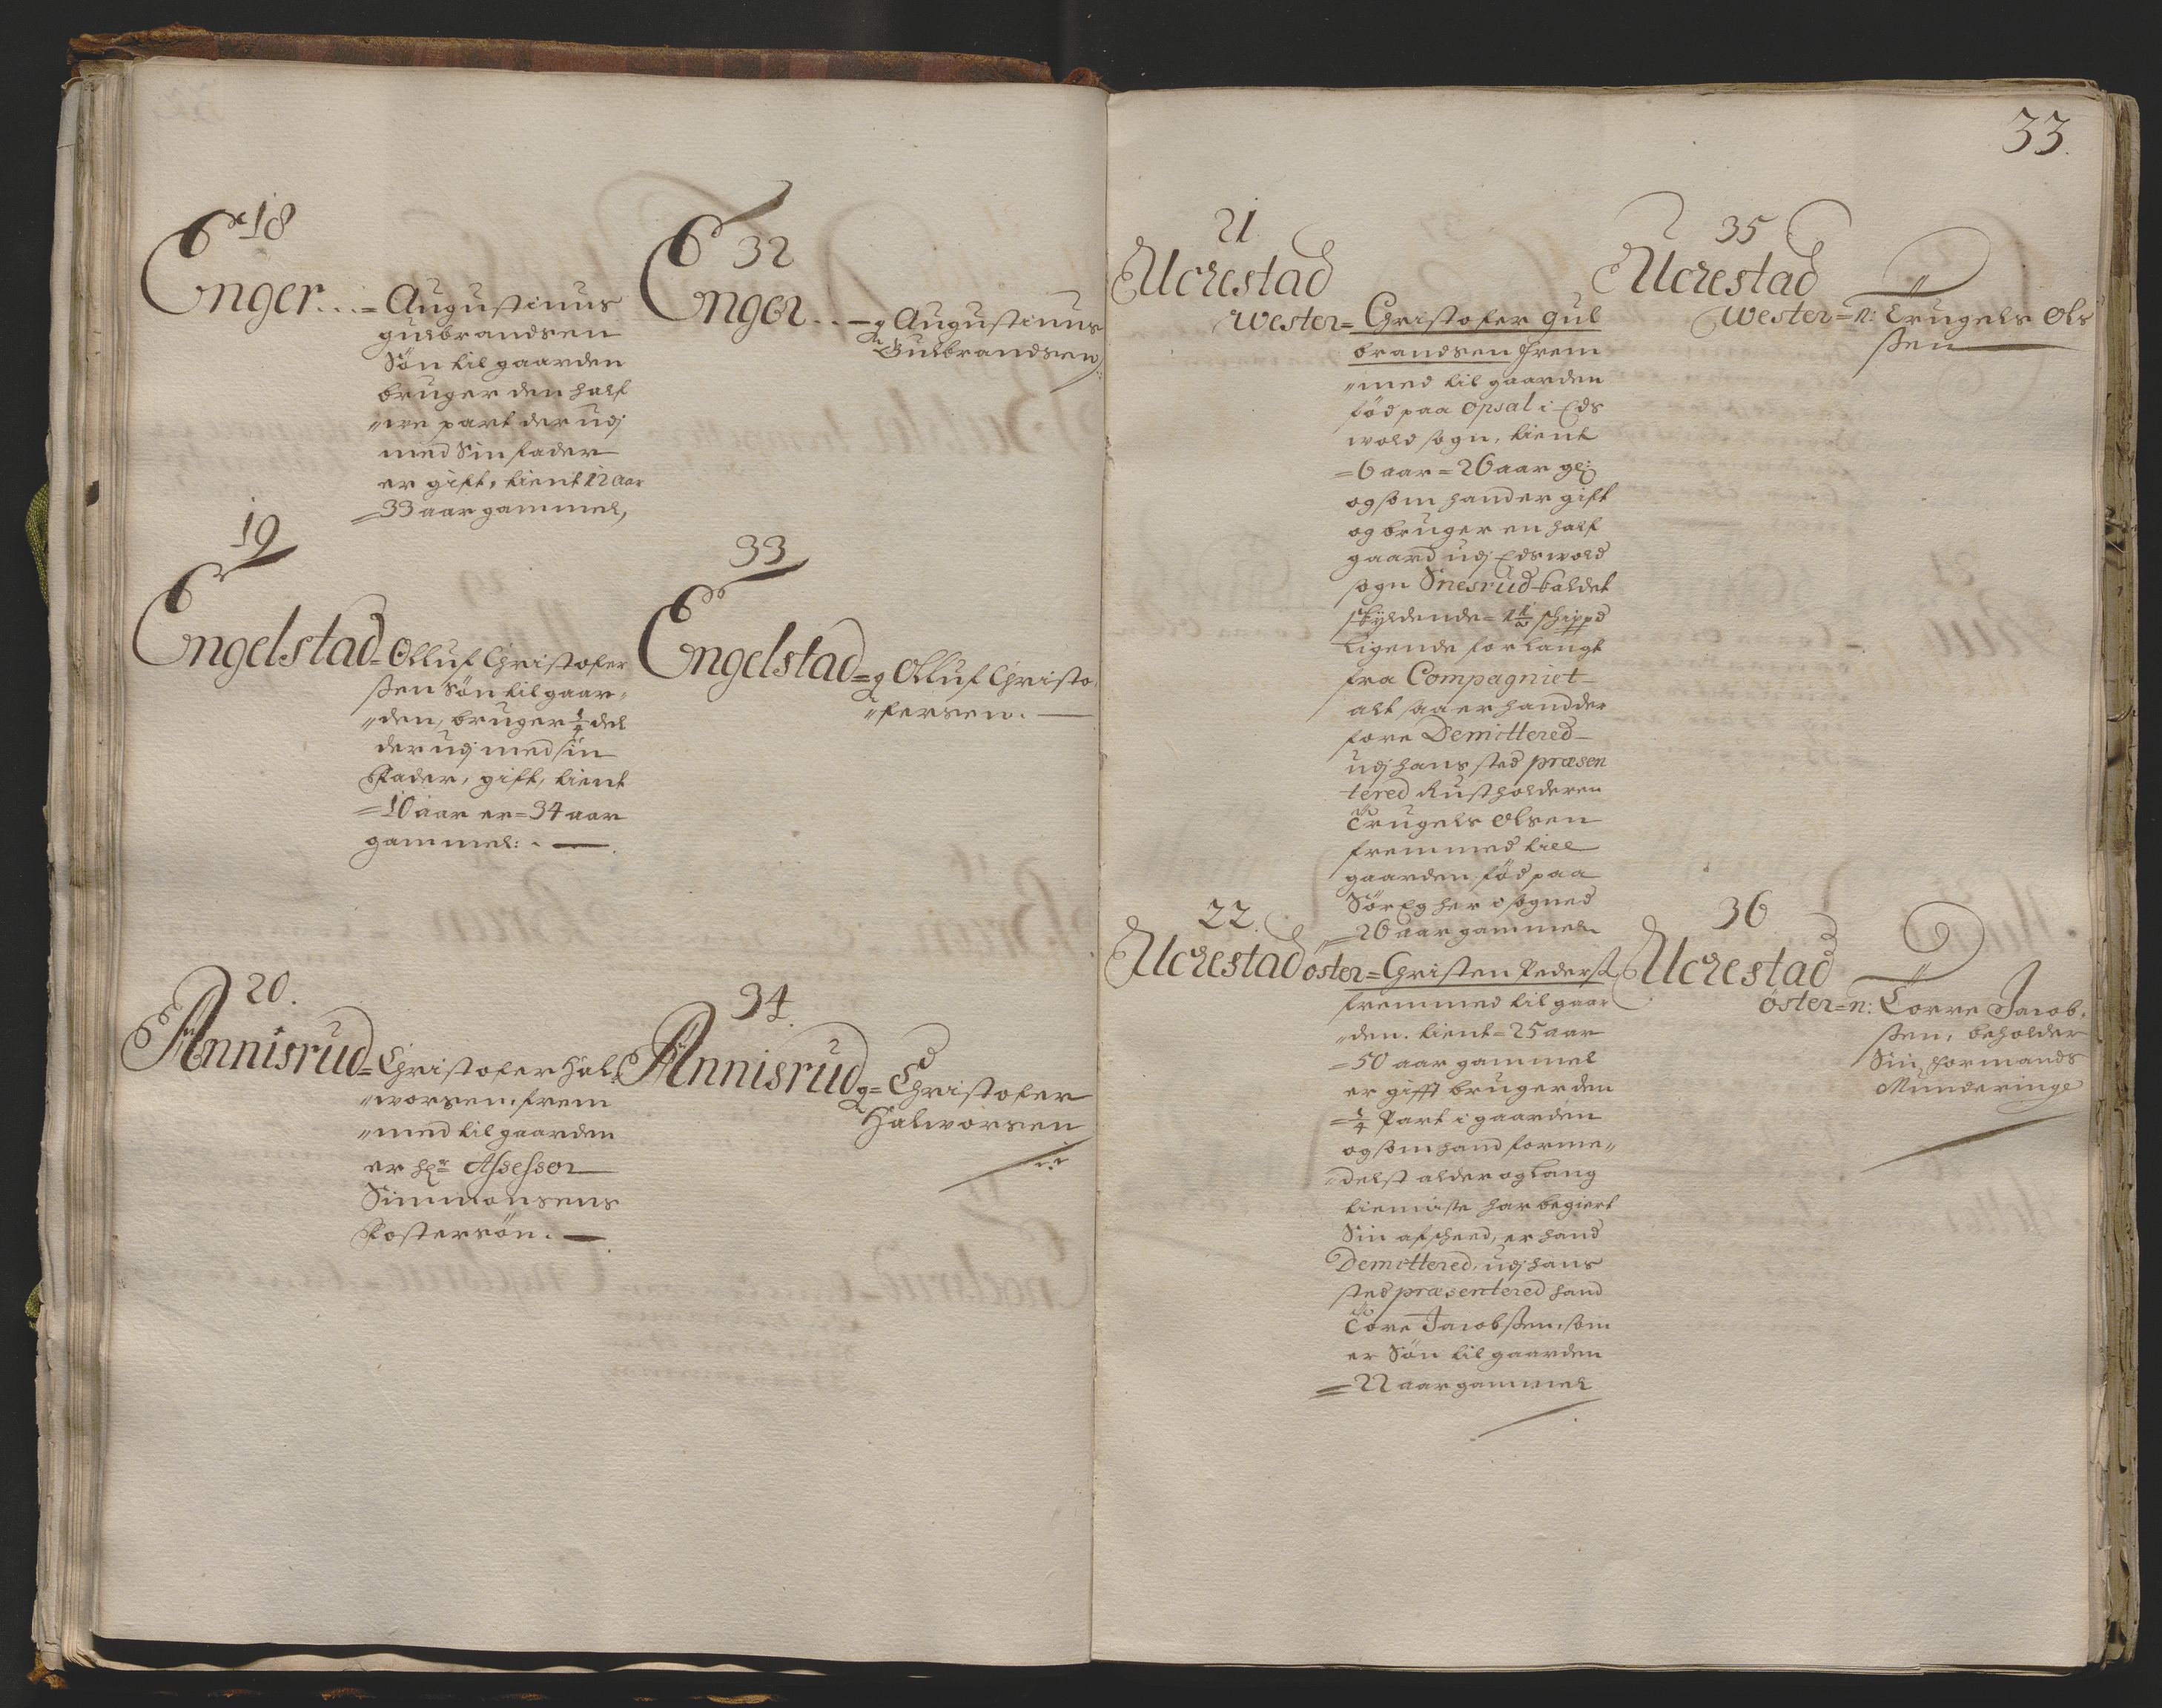 18
Enger... = Augustinus
gulbrandsen
Søn til gaarden
bruger den half
"we part der udj
med Sin fader
er gift, tient 12 aar
= 33 aar gammel,
19
Engelstad = Olluf Christofer
ßen Søn til gaar„
„den, bruger 1/4 del
der udj med sin
Fader, gift, tient
= 10 aar er = 34 aar
gammel: . —
20.
Annisrud = Christofer Hal„
„worsen. frem
„med til gaarden
er Hr. Assessor
Simmonsens
Fostersøn. —
32
Enger.. — g Augustinus
Gulbrandsen
33
Engelstad = g Olluf Christo„
„fersen. —
34.
Annisrud g = Christofer
Halworsen
33.
21
Ucrestad
Wester = Christofer gul
brandsen frem
„med til gaarden
fød paa Opsal i Eds
wold sogn, tient
= 6 aar = 26 aar gl:
og som hand er gift
og bruger en half
gaard udj Edswold
sogn Snesrud kaldet
skyldende = 1 1/2 schippd
Ligende for langt
fra Compagniet
alt saa er hand der
fore Demittered
udj hans sted præsen
tered Rustholderen
Trugels Olsen
fremmed till
gaarden, fød paa
Sør Eg her i sogned
= 26 aar gammel
22.
Ucrestad öster = Christen Peders
fremmed til gaar
„den. tient = 25 aar
= 50 aar gammel
er gifft bruger den
= 1/4 Part i gaarden
og som hand forme„
„delst alder og lang
tieniste har begiert
Sin afskeed, er hand
Demittered, udj hans
sted præsentered hand
Tore Jacobßen, som
er Søn til gaarden
= 22 aar gammel
35
Ucrestad
Wester = n: Trugels Ols
ßen —
36
Ucrestad
öster = n: Torre Jacob„
ßen, beholder
Sin Formands
Munderinge